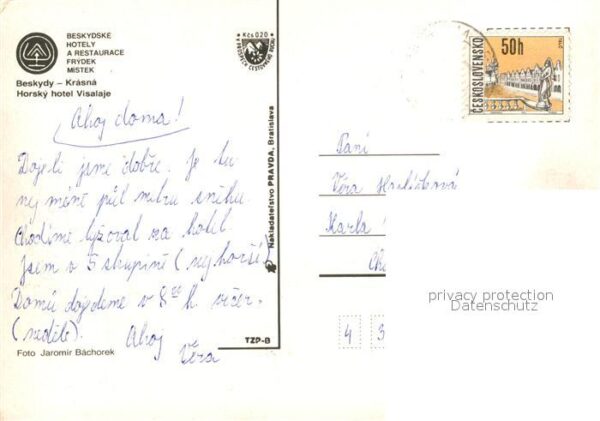 BESKYDSKÉ
HOTELY
A RESTAURACE
FRÝDEK
MÍSTEK
Kčs 0,20
Beskydy – Krásná
Horský hotel Visalaje
Ahoj doma!
Dojeli jsme dobře. Je tu
nejméně půl metru sněhu.
Chodíme lyžovat za hotel
jsem v 5 skupině (nejhorší)
Domů dojedeme v 8 00 h. večer.
(neděle). Ahoj
Věra
Foto Jaromír Báchorek
TZP-B
Nakladatelství PRAVDA, Bratislava
ČESKOSLOVENSKO
50h
TELČ
Paní
Věra Havlíčková
Karla
Che
4 3
privacy protection
Datenschutz